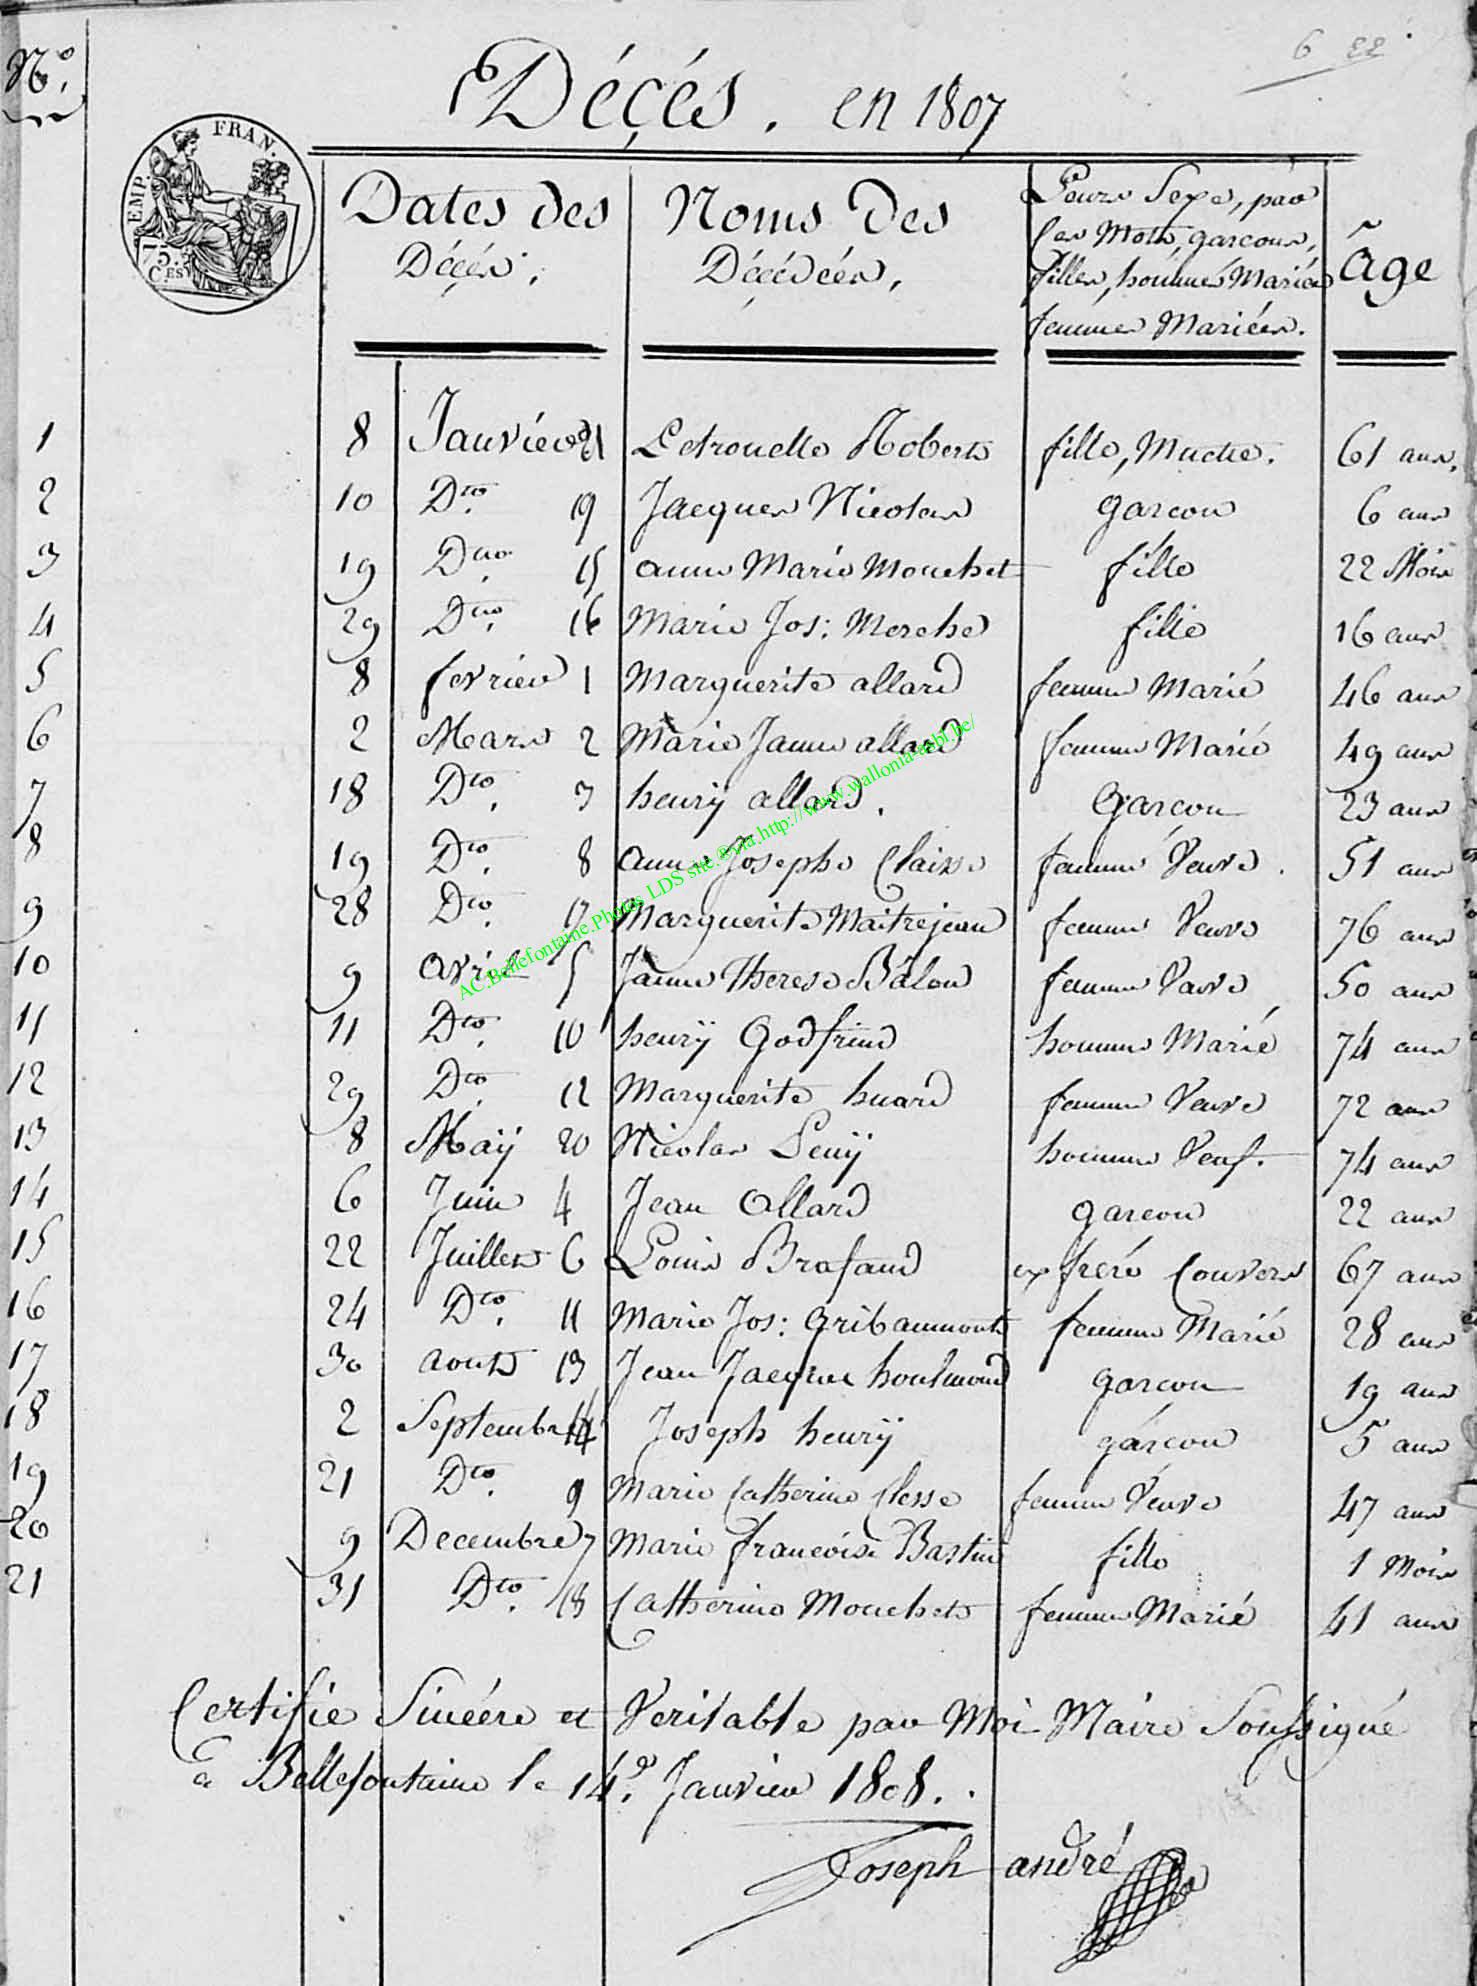 6 22
N.o
Décés. en 1807
EMP. FRAN.
75.
C.ES
Dates des Décés.
Noms des Décédées.
Leurs Sexe, par
les Mots, garcons,
filles, hommes Mariés
femmes Mariées.
âge
1 8 Janvier 21 Petronelle Roberts fille, 61 ans.
2 10 Dto. 19 Jacques Nicolas garcon 6 ans
3 19 Dto. 15 anne Marie Mouchet fille 22 Mois
4 29 Dto. 16 Marie Jos: Merche fille 16 ans
5 8 fevrier 1 Marguerite allard femme Marié 46 ans
6 2 Mars 2 Marie Janne allard femme Marié 49 ans
7 18 Dto. 3 henrÿ allard. garcon 23 ans
8 19 Dto. 8 anne Josephe Claisse femme Veuve. 51 ans
9 28 Dto. 17 Marguerite Maitrejean femme Veuve 76 ans
10 9 avril 5 Janne Therese Balon femme Vauve 50 ans
11 11 Dto. 10 henrÿ Godfrind homme Marié 74 ans
12 29 Dto. 12 Marguerite huard femme Veuve 72 ans
13 8 Maÿ 20 Nicolas homme Veuf. 74 ans
14 6 Juin 4 Jean Allard garcon 22 ans
15 22 Juillet 6 Louis Brafaud ex frère Convers 67 ans
16 24 Dto. 11 Marie Jos: Gribaumonts femme Marié 28 ans
17 30 aouts 13 Jean Jacque houlmond garcon 19 ans
18 2 Septembre 14 Joseph henrÿ garcon 5 ans
19 21 Dto. 9 Marie Catherine Clesse femme Veuve 47 ans
20 9 Decembre 7 Marie francoise Bastin fille 1 Mois
21 31 Dto. 18 Catherine Mouchets femme Marié 41 ans
AC.Bellefontaine.Photos LDS site.®via.http://www.wallonia-asbl.be/
Certifie Sincère et Veritable par Moi Maire Soussigné
a Bellefontaine le 14e. Janvier 1808..
Joseph andré